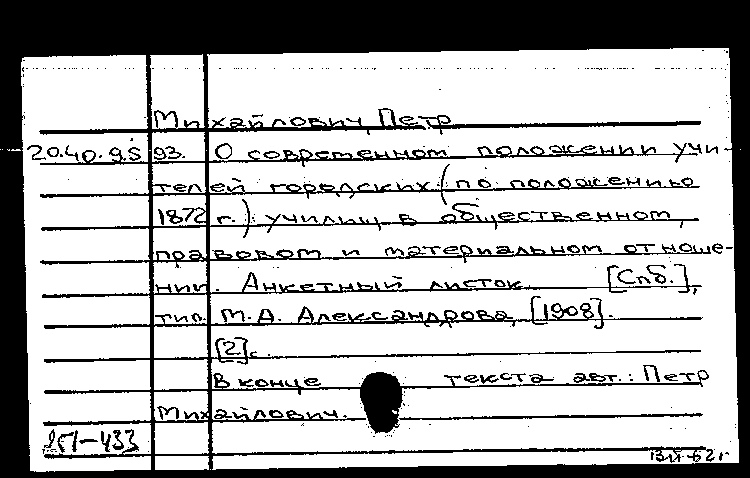 Михайлович, Петр
20.40.9.5 93. О современном положении учи-
телей городских (по положению
1872 г.) училищ в общественном,
правовом и материальном отноше-
нии. Анкетный листок. [Спб.],
тип. М.Д. Александрова, [1908].
[2] с.
В конце текста авт.: Петр
Михайлович.
251-433